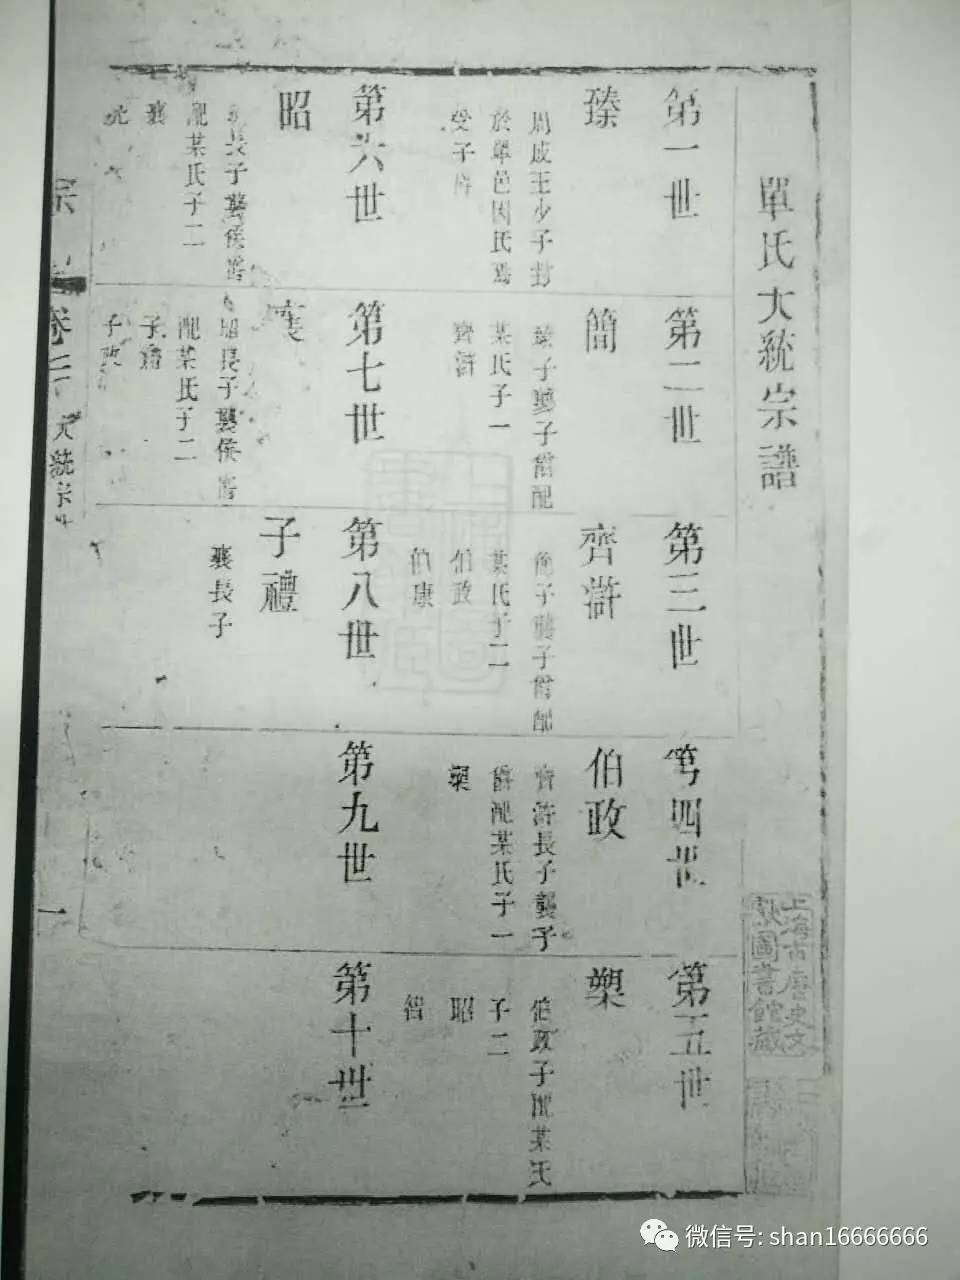 單氏大統宗譜
第一世
臻
周成王少子封
於單邑因氏焉
受子爵
第二世
簡
臻子襲子爵配
某氏子一
齊滸
第三世
齊滸
簡子襲子爵配
某氏子二
伯政
伯康
第四世
伯政
齊滸長子襲子
爵配某氏子一
槊
第五世
槊
伯政子配某氏
子二
昭
智
第六世
昭
長子襲侯爵
配某氏子二
襄
第七世
襄
昭長子襲侯爵
配某氏子二
子
子
第八世
子禮
襄長子
第九世
第十世
宗
卷
大統宗
一
上海市歷史文
獻圖書館藏
微信号: shan16666666